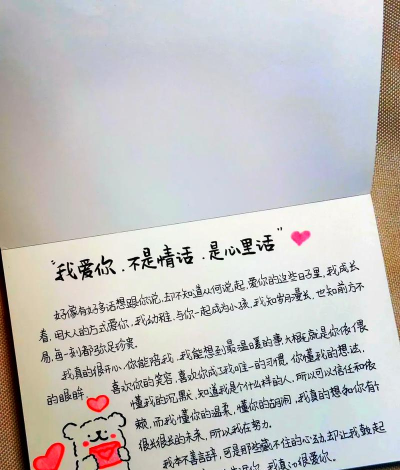 “我爱你.不是情话.是心里话”
好像有好多话想跟你说,却不知道从何说起.爱你的这些日子里,我成长
着,用大人的方式爱你,我幼稚,与你一起成为小孩,我知岁月漫长,也知前方不
易,每一刻都弥足珍贵.
我真的很开心,你能陪我,我能想到最温暖的事大概就是你依偎
的眼眸 喜欢你的笑容,喜欢你成了我唯一的习惯,你懂我的想法,
懂我的沉默,知道我是个什么样的人,所以可以信任和依
赖,而我,懂你的温柔,懂你的胡闹,我真的想和你有个
很长很长的未来,所以我在努力.
我本不善言辞,可是那些藏不住的心动,却让我鼓起
我真的很爱你.